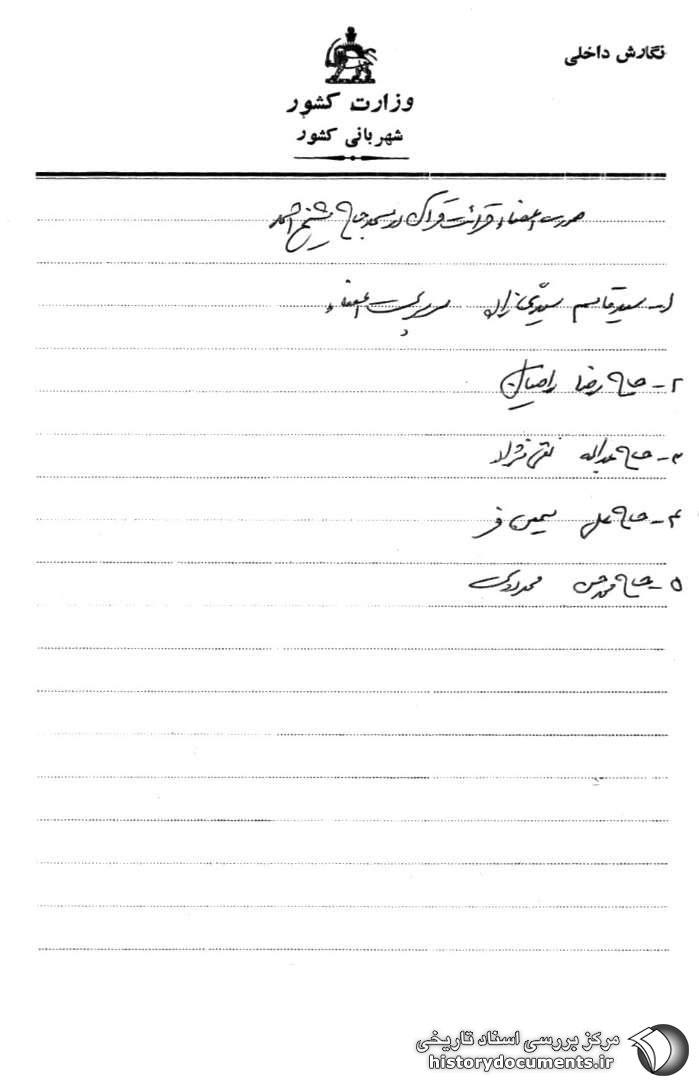 نگارش داخلی
وزارت کشور
شهربانی کشور
صورت اعضاء قرائت قرآن در مسجد حاج شیخ احمد
۱- سید قاسم سرپرست اعضاء
۲- حاج رضا
۳- حاج عبداله تقی نژاد
۴- حاج علی سیمین فر
۵- حاج محمد حسن
مرکز بررسی اسناد تاریخی
historydocuments.ir